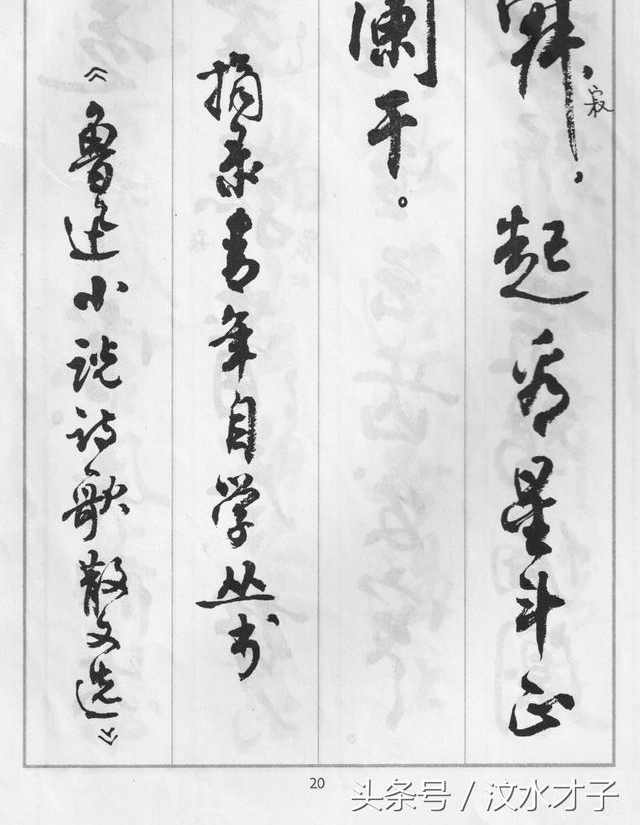 寂，起看星斗正
阑干。
摘录青年自学丛书
《鲁迅小说诗歌散文选》
20
头条号 / 汶水才子